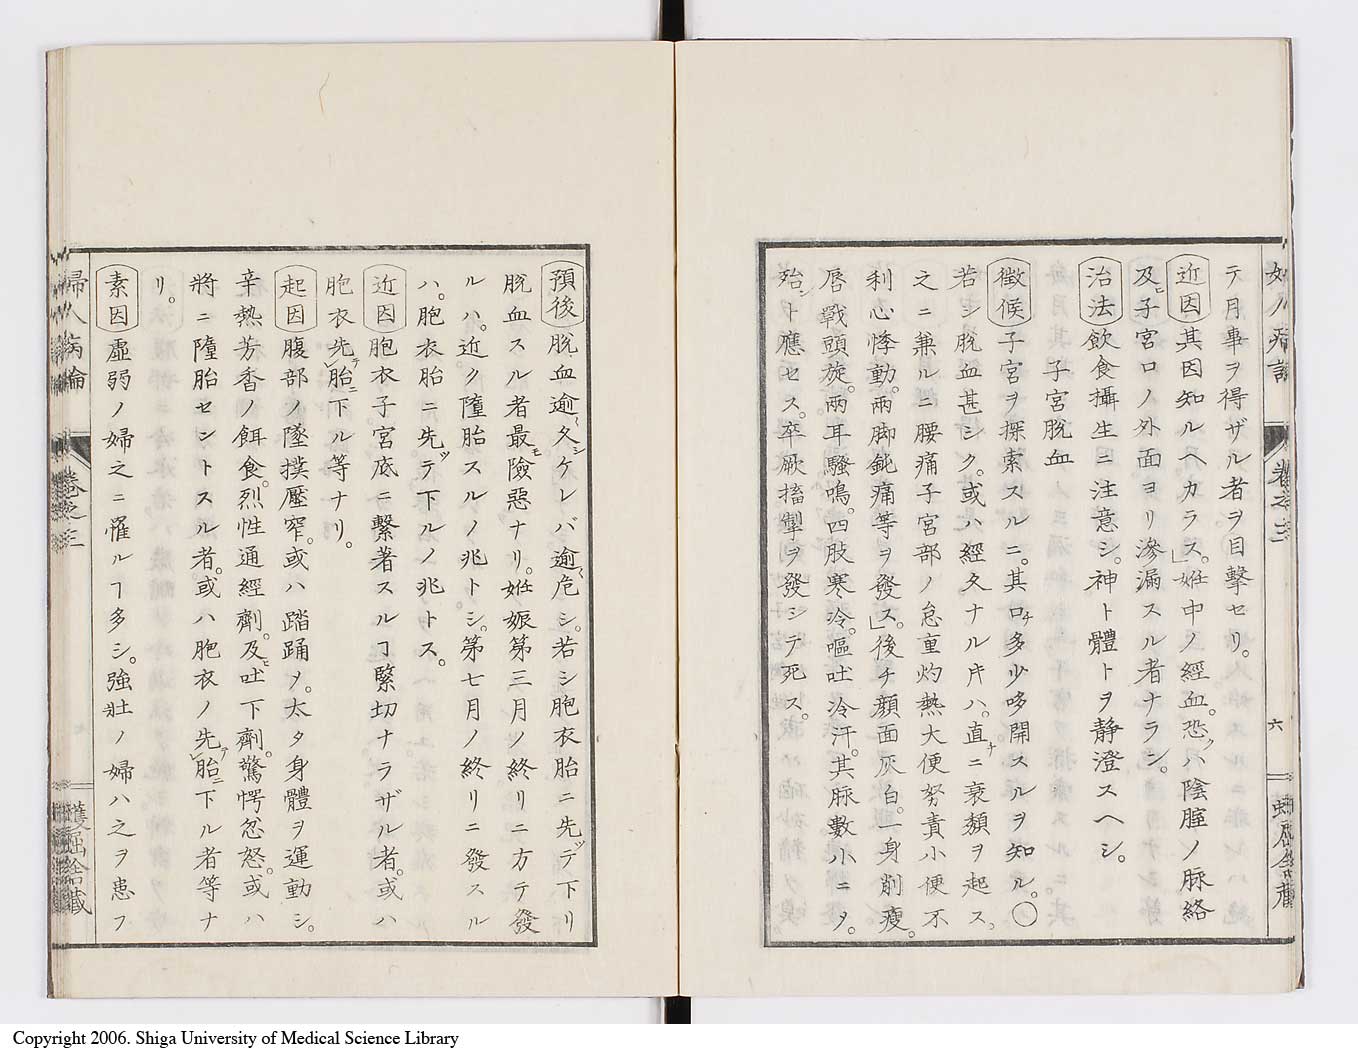 テ月事ヲ得ザル者ヲ目擊セリ。
近因其因知ルヘカラス。」姙中ノ經血。恐ハ陰腟ノ脉絡
及ヒ子宮口ノ外面ヨリ滲漏スル者ナラン。
治法飲食攝生ニ注意シ。神ト體トヲ静澄スヘシ。
子宮脱血
徴候子宮ヲ探索スルニ。其口多少哆開スルヲ知ル。○
若シ脱血甚シク。或ハ經久ナル片ハ。直チニ衰頽ヲ起ス。
之ニ兼ルニ腰痛子宮部ノ怠重灼熱大便努責小便不
利心悸動。兩脚鈍痛等ヲ發ス。」後チ顔面灰白。一身削瘦。
唇戰頭旋。兩耳騷鳴。四肢寒冷。嘔吐冷汗。其脉數小ニヲ。
殆ント應セス。卒厥搐掣ヲ發シテ死ス。
六
預後脱血逾久シケレバ逾危シ。若シ胞衣胎ニ先ツテ下リ
脱血スル者最モ險惡ナリ。姙娠第三月ノ終リニ方テ發
ルハ。近ク墮胎スルノ兆トシ。第七月ノ終リニ發スル
ハ。胞衣胎ニ先ツテ下ルノ兆トス。
近因胞衣子宮底ニ繫著スルヿ緊切ナラザル者。或ハ
胞衣先テ胎ニ下ル等ナリ。
起因腹部ノ墜撲壓窄。或ハ踏踊ノ。太タ身體ヲ運動シ。
辛熱芳香ノ餌食。烈性通經劑。及ヒ吐下劑。驚愕忽怒。或ハ
將ニ墮胎セントスル者。或ハ胞衣ノ先テ胎ニ下ル者等ナ
リ。
素因虛弱ノ婦之ニ罹ルヿ多シ。強壯ノ婦ハ之ヲ患フ
婦人病論
卷之三
Copyright 2006. Shiga University of Medical Science Library